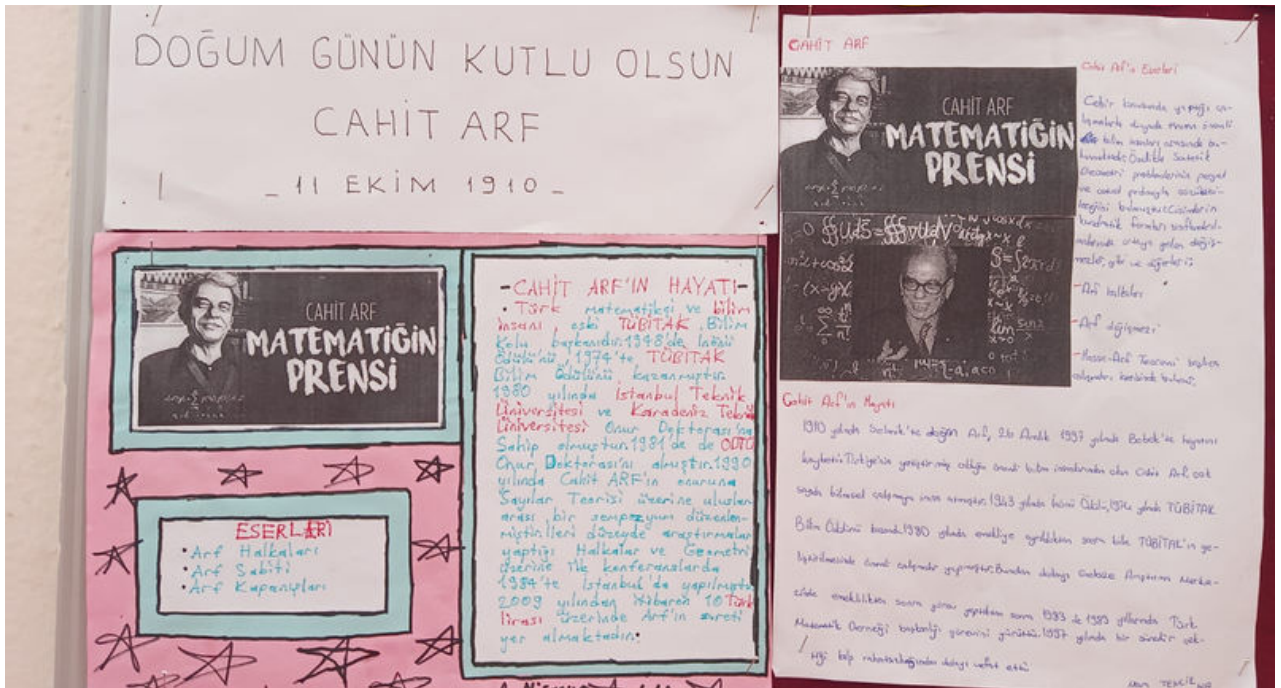 DOĞUM GÜNÜN KUTLU OLSUN
CAHİT ARF
- 11 EKİM 1910 -
CAHİT ARF
MATEMATİĞİN
PRENSİ
ESERLARİ
• Arf Halkaları
• Arf Sabiti
• Arf Kapanışları
- CAHİT ARF'IN HAYATI -
• Türk matematikçi ve bilim
insanı eski TÜBİTAK Bilim
Kolu başkanıdır.1948'de İnönü
Ödülü'nü, 1974'te TÜBİTAK
Bilim Ödülünü kazanmıştır.
1980 yılında İstanbul Teknik
Üniversitesi ve Karadeniz Teknik
Üniversitesi Onur Doktorası'na
Sahip olmuştur.1981'de de ODTÜ
Onur Doktorası'nı almıştır.1990
yılında Cahit ARF'ın onuruna
Sayılar Teorisi üzerine uluslar
arası bir sempozyum düzenlen-
miştir.İleri düzeyde araştırmalar
yaptığı Halkalar ve Geometri
üzerine ilk konferanslarda
1984'te İstanbul'da yapılmıştı
2009 yılından itibaren 10 Türk
lirası üzerinde Arf'ın sureti
yer almaktadır.
CAHİT ARF
CAHİT ARF
MATEMATİĞİN
PRENSİ
Cahit Arf'ın Eserleri
Cebir konusunda yaptığı ça-
lışmalarla dünyada
bilim insanları arasında bu-
Geometri problemlerinin pergel
ve cetvel
kuadratik formları
ortaya çıkan değiş-
mezler, gibi ve diğerleri;
- Arf halkaları
- Arf değişmezi
- Hasse-Arf Teoremi
Cahit Arf'ın Hayatı
1910 yılında Selanik'te doğan Arf, 26 Aralık 1997 yılında Bebek'te hayatını
kaybetti. Türkiye'nin yetiştirmiş olduğu bilim insanlarından olan Cahit Arf, çok
sayıda bilimsel çalışmaya imza atmıştır. 1943 yılında İnönü Ödülü, 1974 yılında TÜBİTAK
Bilim Ödülünü kazandı. 1980 yılında emekliye ayrıldıktan sonra bile TÜBİTAK'ın ge-
liştirilmesinde çalışmalar yapmıştır. Bundan dolayı Araştırma Merke-
zinde emeklilikten sonra görev yaptıktan sonra yıllarında Türk
Matematik Derneği başkanlığı görevini yürüttü. 1997 yılında bir süredir çek-
tiği kalp rahatsızlığından dolayı vefat etti